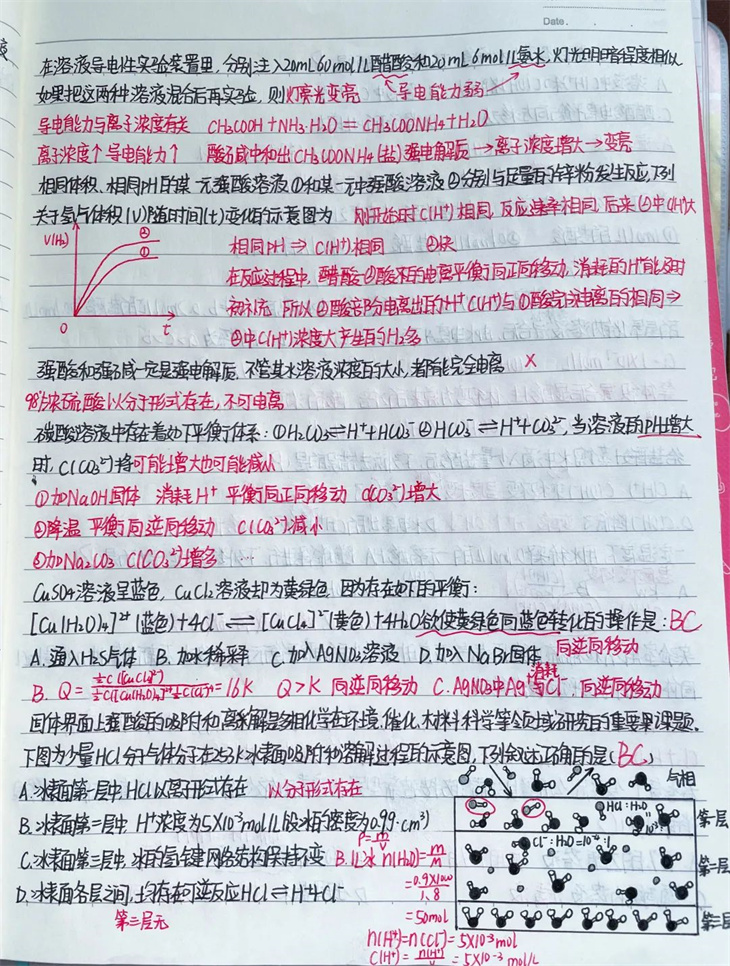 Date.
在溶液导电性实验装置里,分别注入20mL 6mol/L醋酸和20mL 6mol/L氨水,灯光明暗程度相似
如果把这两种溶液混合后再实验,则灯光变亮 导电能力弱
导电能力与离子浓度有关 CH₃COOH+NH₃·H₂O=CH₃COONH₄+H₂O
离子浓度↑导电能力↑ 酸碱中和出CH₃COONH₄(盐)强电解质→离子浓度增大→变亮
相同体积、相同pH的某一元强酸溶液①和某一元中强酸溶液②分别与足量的锌粉发生反应,下列
关于氢气体积(V)随时间(t)变化的示意图为 刚开始时C(H⁺)相同,反应速率相同,后来②中C(H⁺)大
V(H₂) ② ① 0 t
相同pH⇒C(H⁺)相同 ②快
在反应过程中,醋酸②酸不的电离平衡向正向移动,消耗的H⁺能及时
补充 所以②酸部分电离出的H⁺C(H⁺)与①酸完全电离的相同⇒
②中C(H⁺)浓度大产生的H₂多
强酸和强碱一定是强电解质,不管其水溶液浓度的大小,都能完全电离 X
98%浓硫酸以分子形式存在,不可电离
碳酸溶液中存在着如下平衡体系:①H₂CO₃⇌H⁺+HCO₃⁻②HCO₃⁻⇌H⁺+CO₃²⁻,当溶液的pH增大
时,C(CO₃²⁻)将可能增大也可能减小
①加NaOH固体 消耗H⁺ 平衡向正向移动 C(CO₃²⁻)增大
②降温 平衡向逆向移动 C(CO₃²⁻)减小
③加Na₂CO₃ C(CO₃²⁻)增多…
CuSO₄溶液呈蓝色,CuCl₂溶液却为黄绿色,因为存在如下的平衡:
[Cu(H₂O)₄]²⁺(蓝色)+4Cl⁻⇌[CuCl₄]²⁻(黄色)+4H₂O欲使黄绿色向蓝色转化的操作是:BC
A.通入H₂S气体 B.加水稀释 C.加入AgNO₃溶液 D.加入NaBr固体 向逆向移动
B. Q=½C([CuCl₄]²⁻)/½C([Cu(H₂O)₄]²⁺)·½C(Cl⁻)⁴=16K Q>K 向逆向移动 C.AgNO₃中Ag⁺与Cl⁻ 消耗 向逆向移动
固体界面上强酸的吸附和离解是多相化学在环境、催化、材料科学等领域研究的重要课题.
下图为少量HCl分子气体分子在253K冰表面吸附和溶解过程的示意图,下列叙述正确的是(BC)
A.冰表面第一层中,HCl以离子形式存在 以分子形式存在
B.冰表面第二层中,H⁺浓度为5×10⁻³mol/L(设冰的密度为0.9g·cm³)
C.冰表面第三层中,冰的氢键网络结构保持不变 B.1L冰 n(H₂O)=m/M
ρ=m/V
=0.9×1000/1.8
D.冰表面各层之间,均存在可逆反应HCl⇌H⁺+Cl⁻
=50mol
第三层无
n(H⁺)=n(Cl⁻)=5×10⁻³mol
C(H⁺)=n(H⁺)/V=5×10⁻³mol/L
气相
HCl:H₂O
第一层
Cl⁻:H₂O=10⁻⁴:1
第二层
第三层